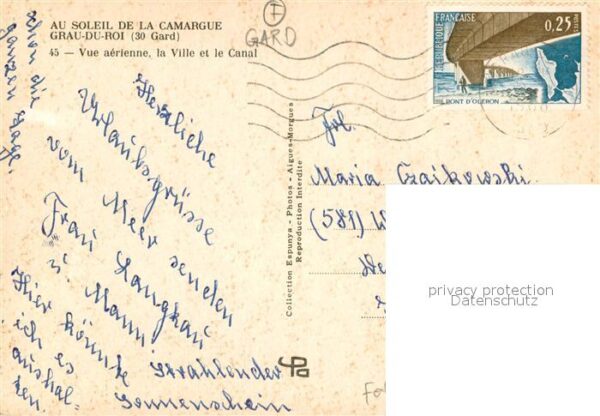 AU SOLEIL DE LA CAMARGUE
GRAU-DU-ROI (30 Gard)
45 — Vue aérienne, la Ville et le Canal
GARD
Herzliche
Urlaubsgrüsse
vom Meer senden
Frau Langkau
u. Mann
Hier könnte
ich es
aushal-
ten.
Strahlender
Sonnenschein
schon die
ganzen Tage.
Collection Espunya - Photos - Aigues-Mortes
Reproduction Interdite
RÉPUBLIQUE FRANÇAISE
0,25
POSTES
PONT D'OLERON
Frl.
Maria Czaikowski
(581) W
privacy protection
Datenschutz